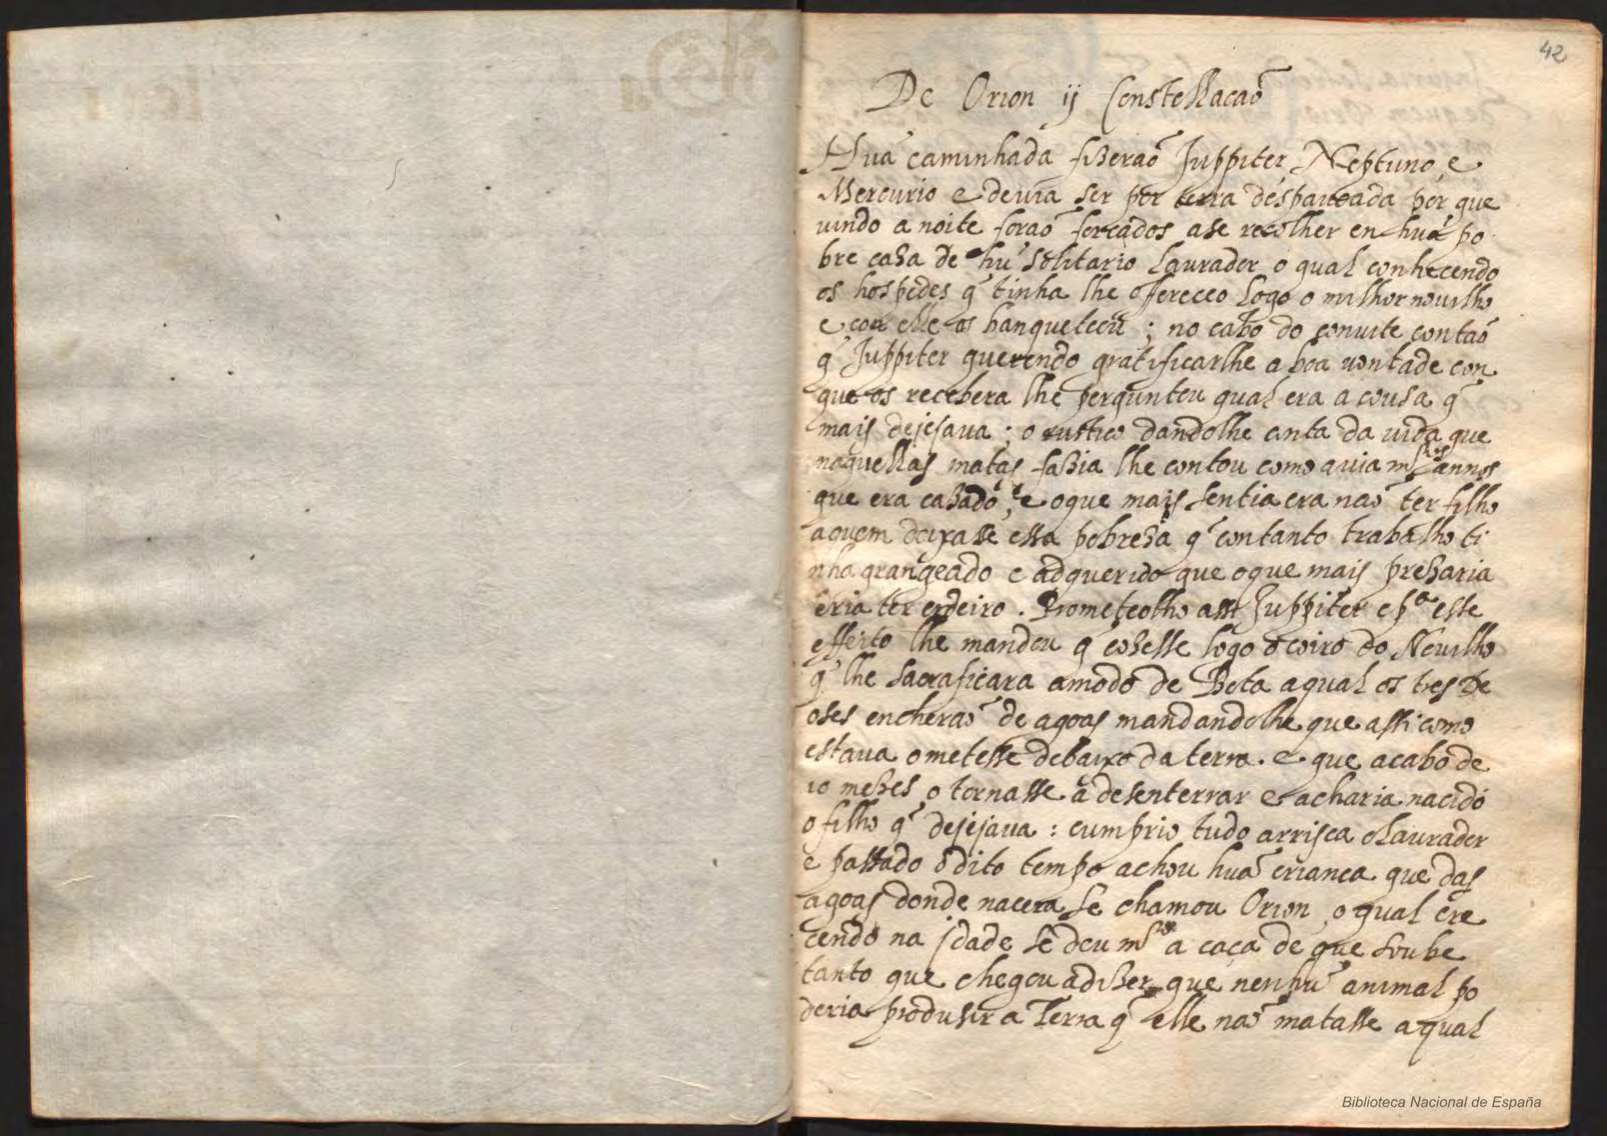 42
De Orion ij Constellacaõ
Huã caminhada fizeraõ Juppiter Neptuno, e
Mercurio e deuia ser por terra despauoada por que
uindo a noite foraõ forcados a se recolher en huã po
bre caza de hũ solitario Laurador o qual conhecendo
os hospedes q̃ tinha lhe offereceo logo o milhor nouilho
e con elle os banqueteou ; no cabo do conuite contaõ
q̃ Juppiter querendo gratificarlhe a boa uontade con
que os recebera lhe perguntou qual era a cousa q̃
mais dejesaua ; o rustico dandolhe conta da uida que
naquellas matas fazia lhe contou como auia m.tos annos
que era cazado, e o que mais sentia era naõ ter filho
a quem deixasse essa pobreza q̃ con tanto trabalho ti
nha grangeado e adquerido que o que mais prezaria
eria ter erdeiro. Prometeolho assi Juppiter e p.a este
effeito lhe mandou q̃ cozesse logo o coiro do Nouilho
q̃ lhe sacraficara a modo de Bota a qual os tres De
oses encheraõ de agoas mandandolhe que assi como
estaua o metesse debaixo da terra. e que a cabo de
10 mezes o tornasse a desenterrar e acharia nacido
o filho q̃ dejejaua : cumprio tudo arrisca o Laurador
e passado o dito tempo achou huã crianca que das
agoas donde nacera se chamou Orion, o qual cre
cendo na jdade se deu m.to a caça de que soube
tanto que chegou a dizer que nenhũ animal po
deria produsir a Terra q̃ elle naõ matasse a qual
Biblioteca Nacional de España